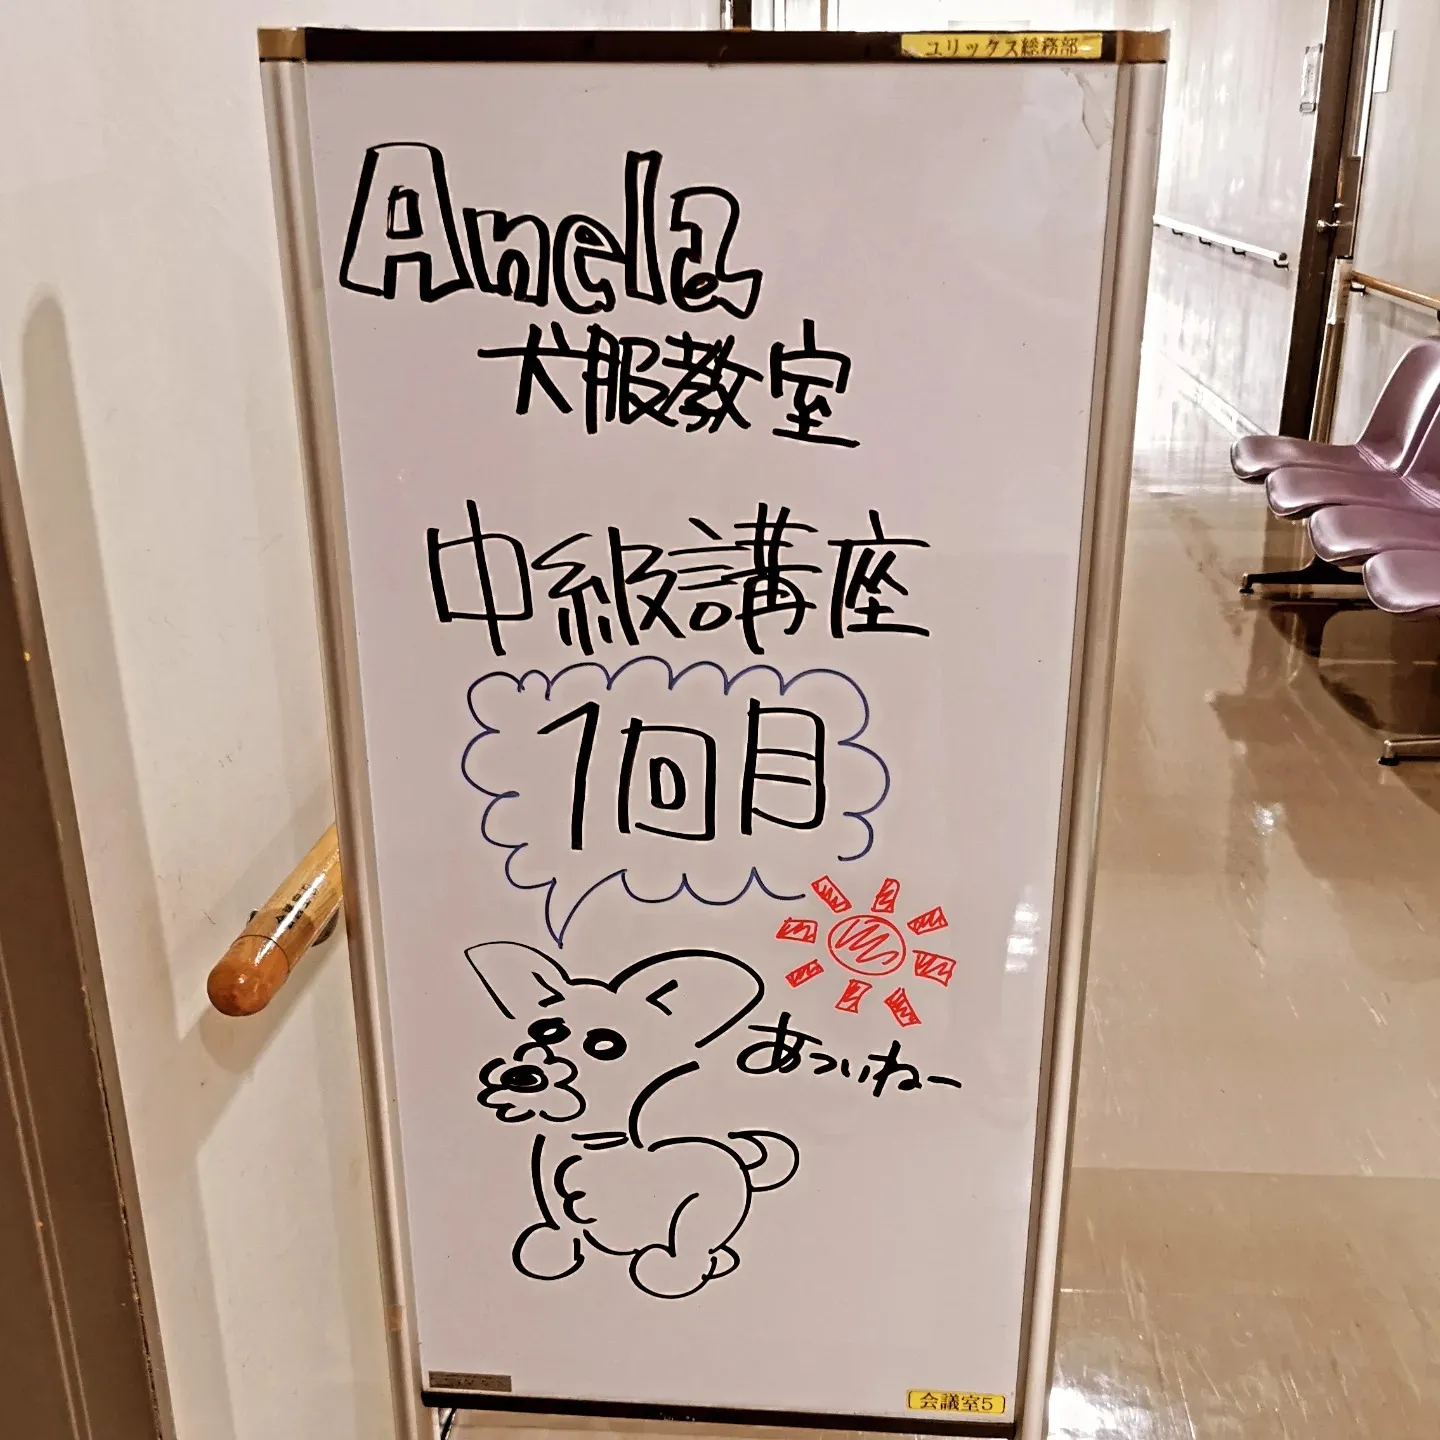 ユリックス総務部
Anela
犬服教室
中級講座
1回目
あついねー
会議室5